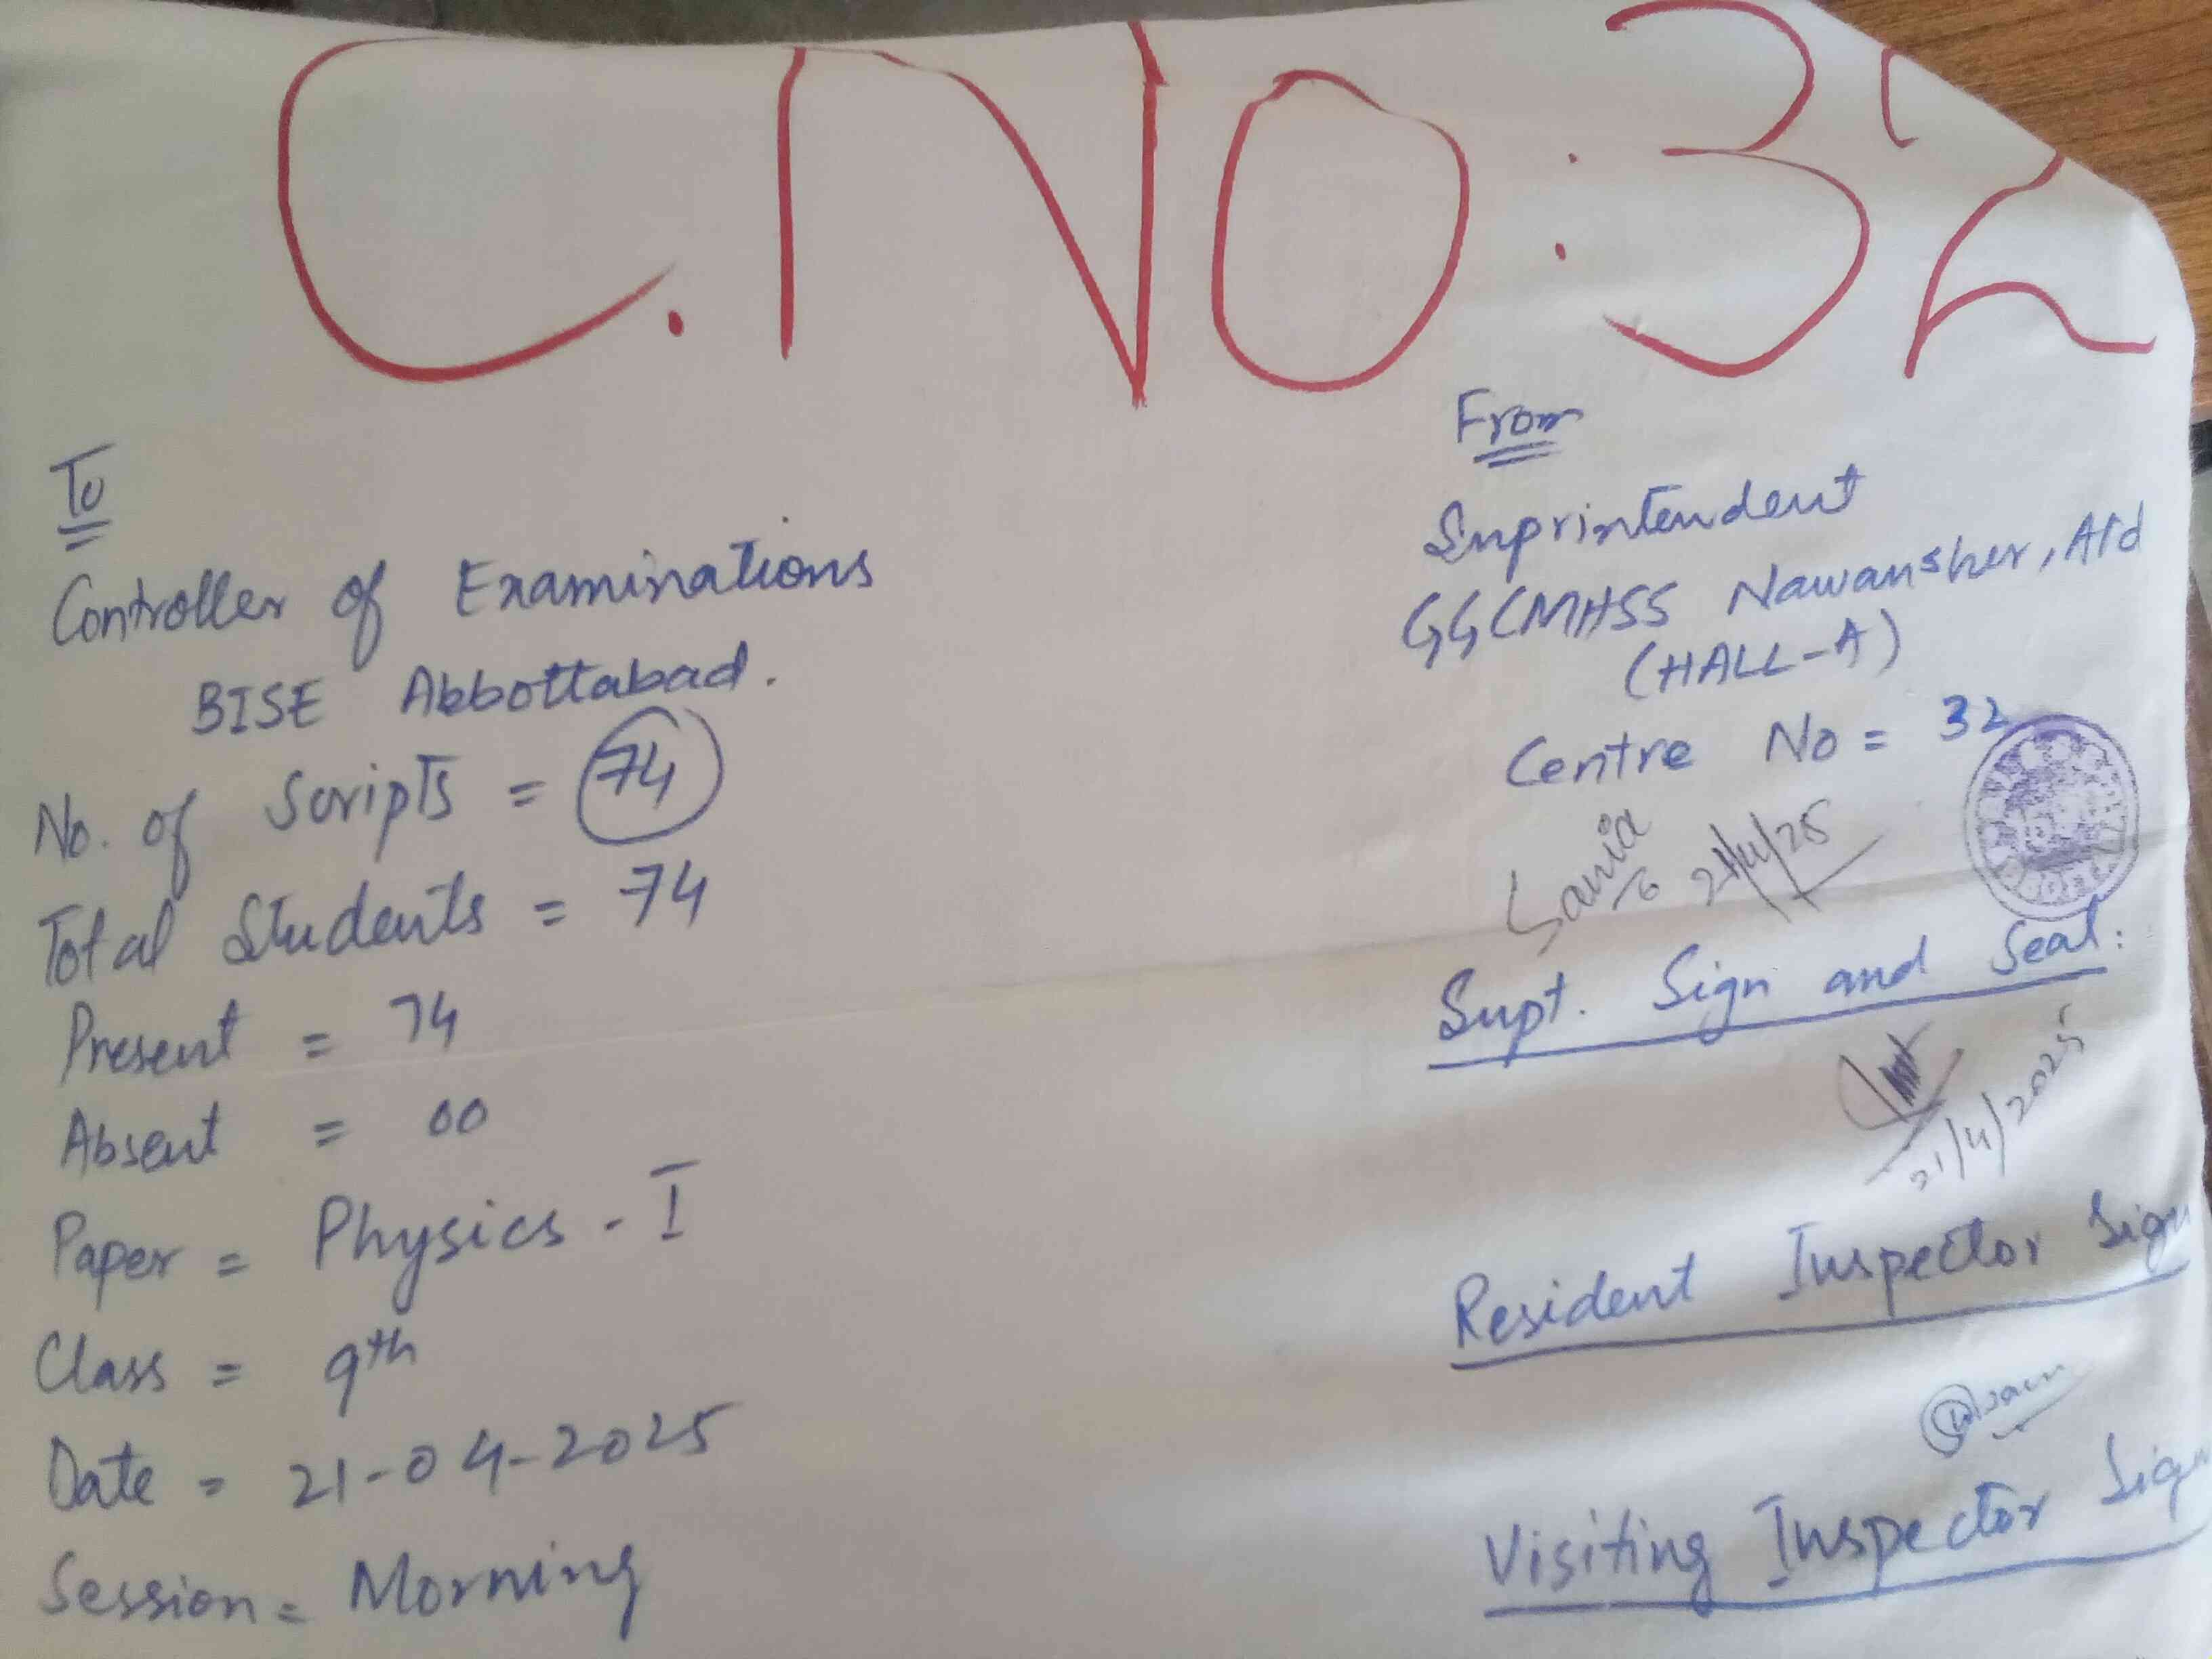 C.NO:32
To
Controller of Examinations
BISE Abbottabad.
No. of Scripts = 74
Total Students = 74
Present = 74
Absent = 00
Paper = Physics - I
Class = 9th
Date = 21-04-2025
Session = Morning
From
Suprintendent
GGCMHSS Nawansher, Atd
(HALL-A)
Centre No = 32
Sania 21/4/25
Supt. Sign and Seal:
21/4/2025
Resident Inspector Sign
Visiting Inspector Sign